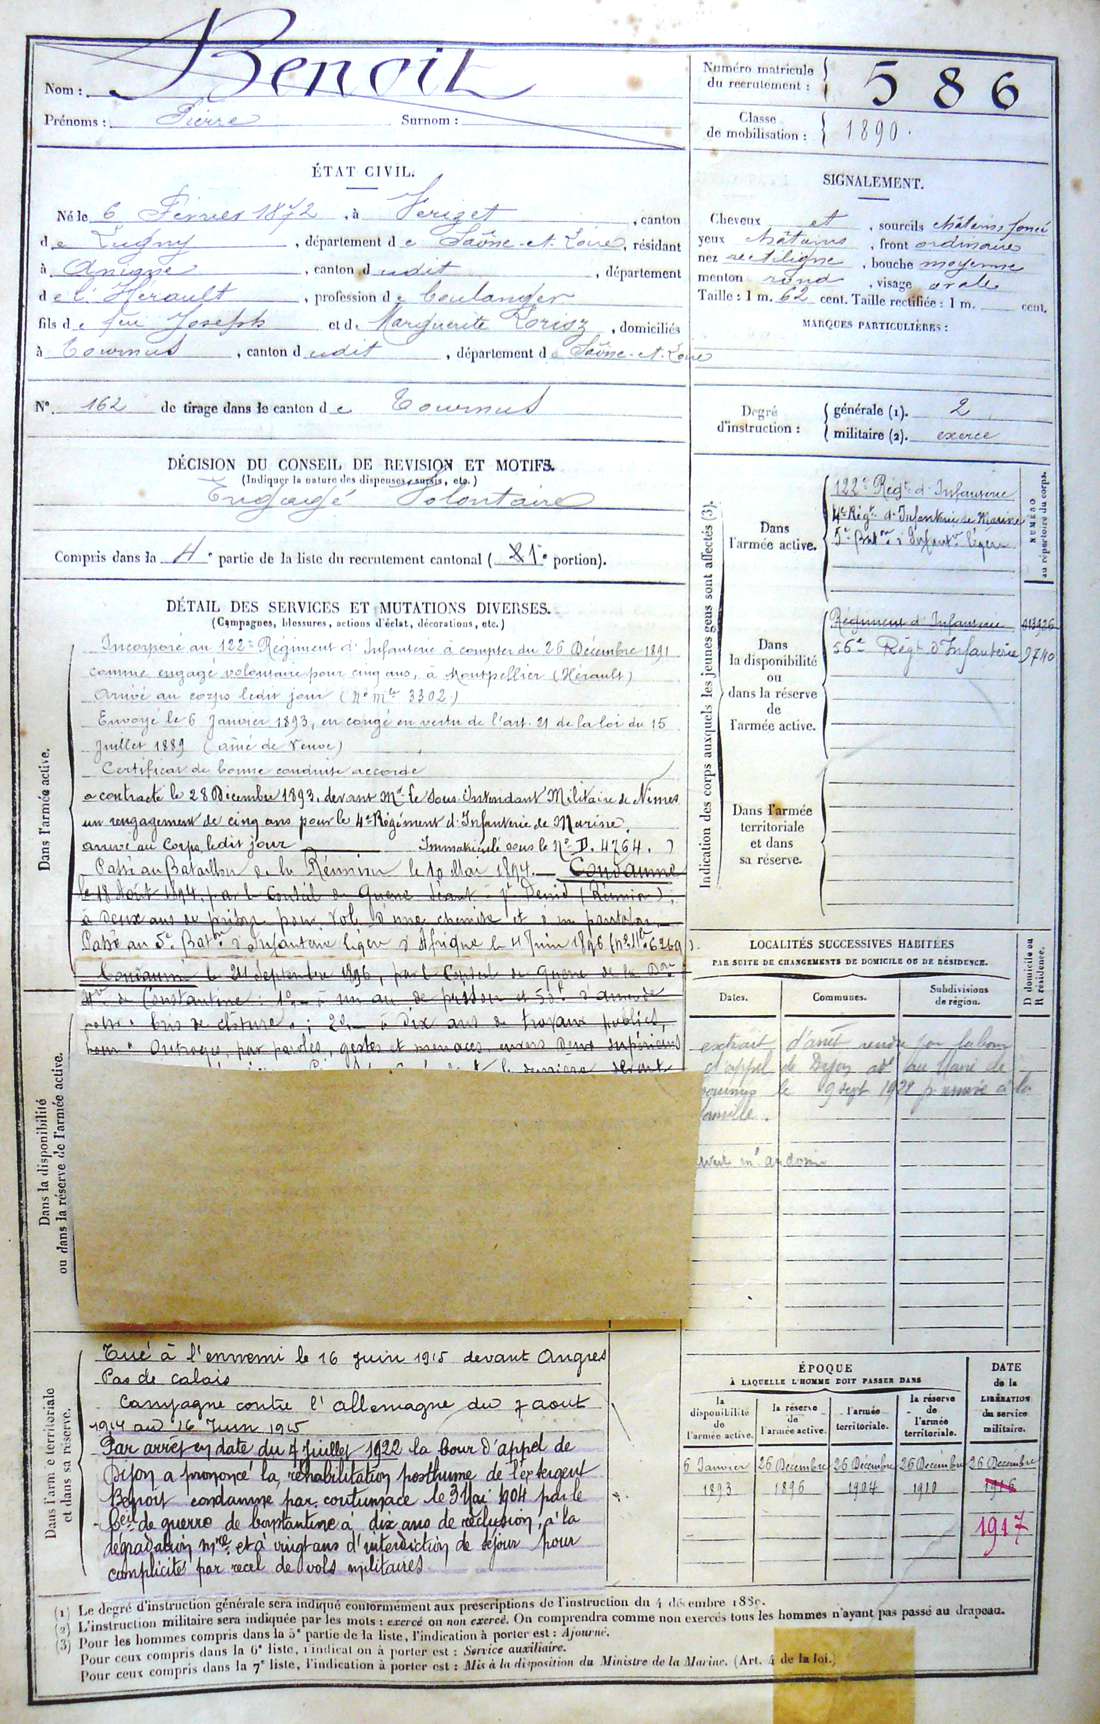 Nom : Benoit
Prénoms : Pierre Surnom :
ÉTAT CIVIL.
Né le 6 Février 1872, à Verizet, canton
de Lugny, département de Saône-et-Loire, résidant
à Aniane, canton dudit, département
de l'Hérault, profession de boulanger
fils de feu Joseph et de Marguerite, domiciliés
à Tournus, canton dudit, département de Saône-et-Loire
N° 162 de tirage dans le canton de Tournus
DÉCISION DU CONSEIL DE REVISION ET MOTIFS.
(Indiquer la nature des dispenses, sursis, etc.)
Engagé Volontaire
Compris dans la 4e partie de la liste du recrutement cantonal ( 1e portion).
DÉTAIL DES SERVICES ET MUTATIONS DIVERSES.
(Campagnes, blessures, actions d'éclat, décorations, etc.)
Dans l'armée active.
Incorporé au 122e Régiment d'Infanterie à compter du 26 Décembre 1891
comme engagé volontaire pour cinq ans, à Montpellier (Hérault)
Arrivé au corps ledit jour (No mle 3302)
Envoyé le 6 Janvier 1893, en congé en vertu de l'art. 21 de la loi du 15
Juillet 1889 (aîné de Veuve)
Certificat de bonne conduite accordé
a contracté le 28 Décembre 1893, devant Mr le Sous-Intendant Militaire de Nimes
un rengagement de cinq ans pour le 4e Régiment d'Infanterie de Marine.
arrivé au Corps ledit jour Immatriculé sous le No D. 4764.
Passé au Bataillon de la Réunion le 10 Mai 1894. Condamné
le 18 Août 1894, par le Conseil de Guerre séant à St Denis (Réunion)
à Deux ans de prison pour Vol d'une chemise et d'un pantalon
Passé au 5e Baton d'Infanterie légère d'Afrique le 4 Juin 1896 (No Mle 6269)
Condamné le 24 Septembre 1896, par le Conseil de Guerre de la Don
de Constantine 1o à un an de prison et 50f d'amende
pour bris de clôture ; 2o à dix ans de travaux publics,
pour Outrages, par paroles, gestes et menaces, envers deux supérieurs
Dans la disponibilité
ou dans la réserve de l'armée active.
Dans l'armée territoriale
et dans sa réserve.
Tué à l'ennemi le 16 juin 1915 devant Angres
Pas de calais
Campagne contre l'allemagne du 7 aout
1914 au 16 Juin 1915
Par arrêt en date du 4 Juillet 1922 la Cour d'appel de
Dijon a prononcé la réhabilitation posthume de l'ex sergent
Benoit condamné par contumace le 3 Mai 1904 par le
Ceil de guerre de Constantine à dix ans de réclusion, à la
dégradation mre et à vingt ans d'interdiction de séjour pour
complicité par recel de vols militaires
Numéro matricule
du recrutement : 586
Classe
de mobilisation : 1890.
SIGNALEMENT.
Cheveux et, sourcils châtains foncé
yeux châtains, front ordinaire
nez rectiligne, bouche moyenne
menton rond, visage ovale
Taille : 1 m. 62 cent. Taille rectifiée : 1 m. cent.
MARQUES PARTICULIÈRES :
Degré
d'instruction :
générale (1). 2
militaire (2). exercé
Indication des corps auxquels les jeunes gens sont affectés (3).
NUMÉRO
au répertoire du corps.
Dans
l'armée active.
122e Régt d'Infanterie
4e Régt d'Infanterie de Marine
5e Baton d'Infantie légère
Dans
la disponibilité
ou
dans la réserve
de
l'armée active.
Régiment d'Infanterie
56e Régt d'Infanterie 9740
Dans l'armée
territoriale
et dans
sa réserve.
LOCALITÉS SUCCESSIVES HABITÉES
PAR SUITE DE CHANGEMENTS DE DOMICILE OU DE RÉSIDENCE.
Dates. Communes. Subdivisions
de région. D domicile ou
R résidence.
extrait d'arrêt rendu par la Cour
d'appel de Dijon au Maire de
Tournus le 9 sept 1922 à la
famille.
ÉPOQUE
À LAQUELLE L'HOMME DOIT PASSER DANS
DATE
de la
LIBÉRATION
du service
militaire.
la
disponibilité
de
l'armée active.
la réserve
de
l'armée active.
l'armée
territoriale.
la réserve
de
l'armée
territoriale.
6 Janvier 26 Décembre 26 Décembre 26 Décembre 26 Décembre
1893 1896 1904 1910 1916
1917
(1) Le degré d'instruction générale sera indiqué conformément aux prescriptions de l'instruction du 4 décembre 1889.
(2) L'instruction militaire sera indiquée par les mots : exercé ou non exercé. On comprendra comme non exercés tous les hommes n'ayant pas passé au drapeau.
(3) Pour les hommes compris dans la 5e partie de la liste, l'indication à porter est : Ajourné.
Pour ceux compris dans la 6e liste, l'indication à porter est : Service auxiliaire.
Pour ceux compris dans la 7e liste, l'indication à porter est : Mis à la disposition du Ministre de la Marine. (Art. 4 de la loi.)